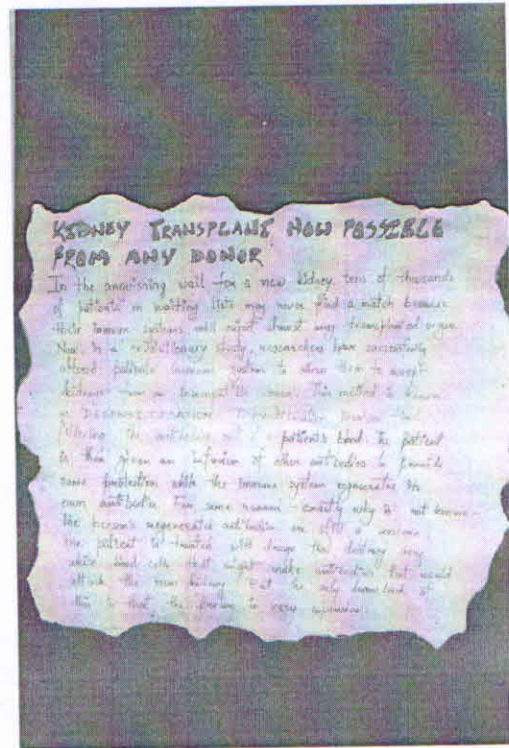 KIDNEY TRANSPLANT NOW POSSIBLE
FROM ANY DONOR
In the anguishing wait for a new kidney tens of thousands
of patients on waiting lists may never find a match because
their immune systems will reject almost any transplanted organ
Now in a revolutionary study, researchers have successfully
altered patients immune systems to allow them to accept
kidneys from an incompatible donor. This method is known
as DESENSITIZATION. involves
filtering the antibodies out a patients blood. The patient
is then given an infusion of other antibodies to provide
some protection while the immune system regenerates its
own antibodies. For some reason - exactly why is not known -
the person's regenerated antibodies are
the patient is treated with drugs that destroy any
white blood cells that might make antibodies that would
attack the new kidney. But the only drawback of
this is that the is very expensive